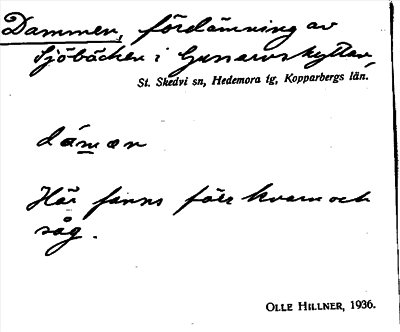 Dammen, fördämning av
Sjöbäcken i Gussarvshyttan,
St. Skedvi sn, Hedemora tg, Kopparbergs län.
dámən
Här fanns förr kvarn och
såg.
OLLE HILLNER, 1936.